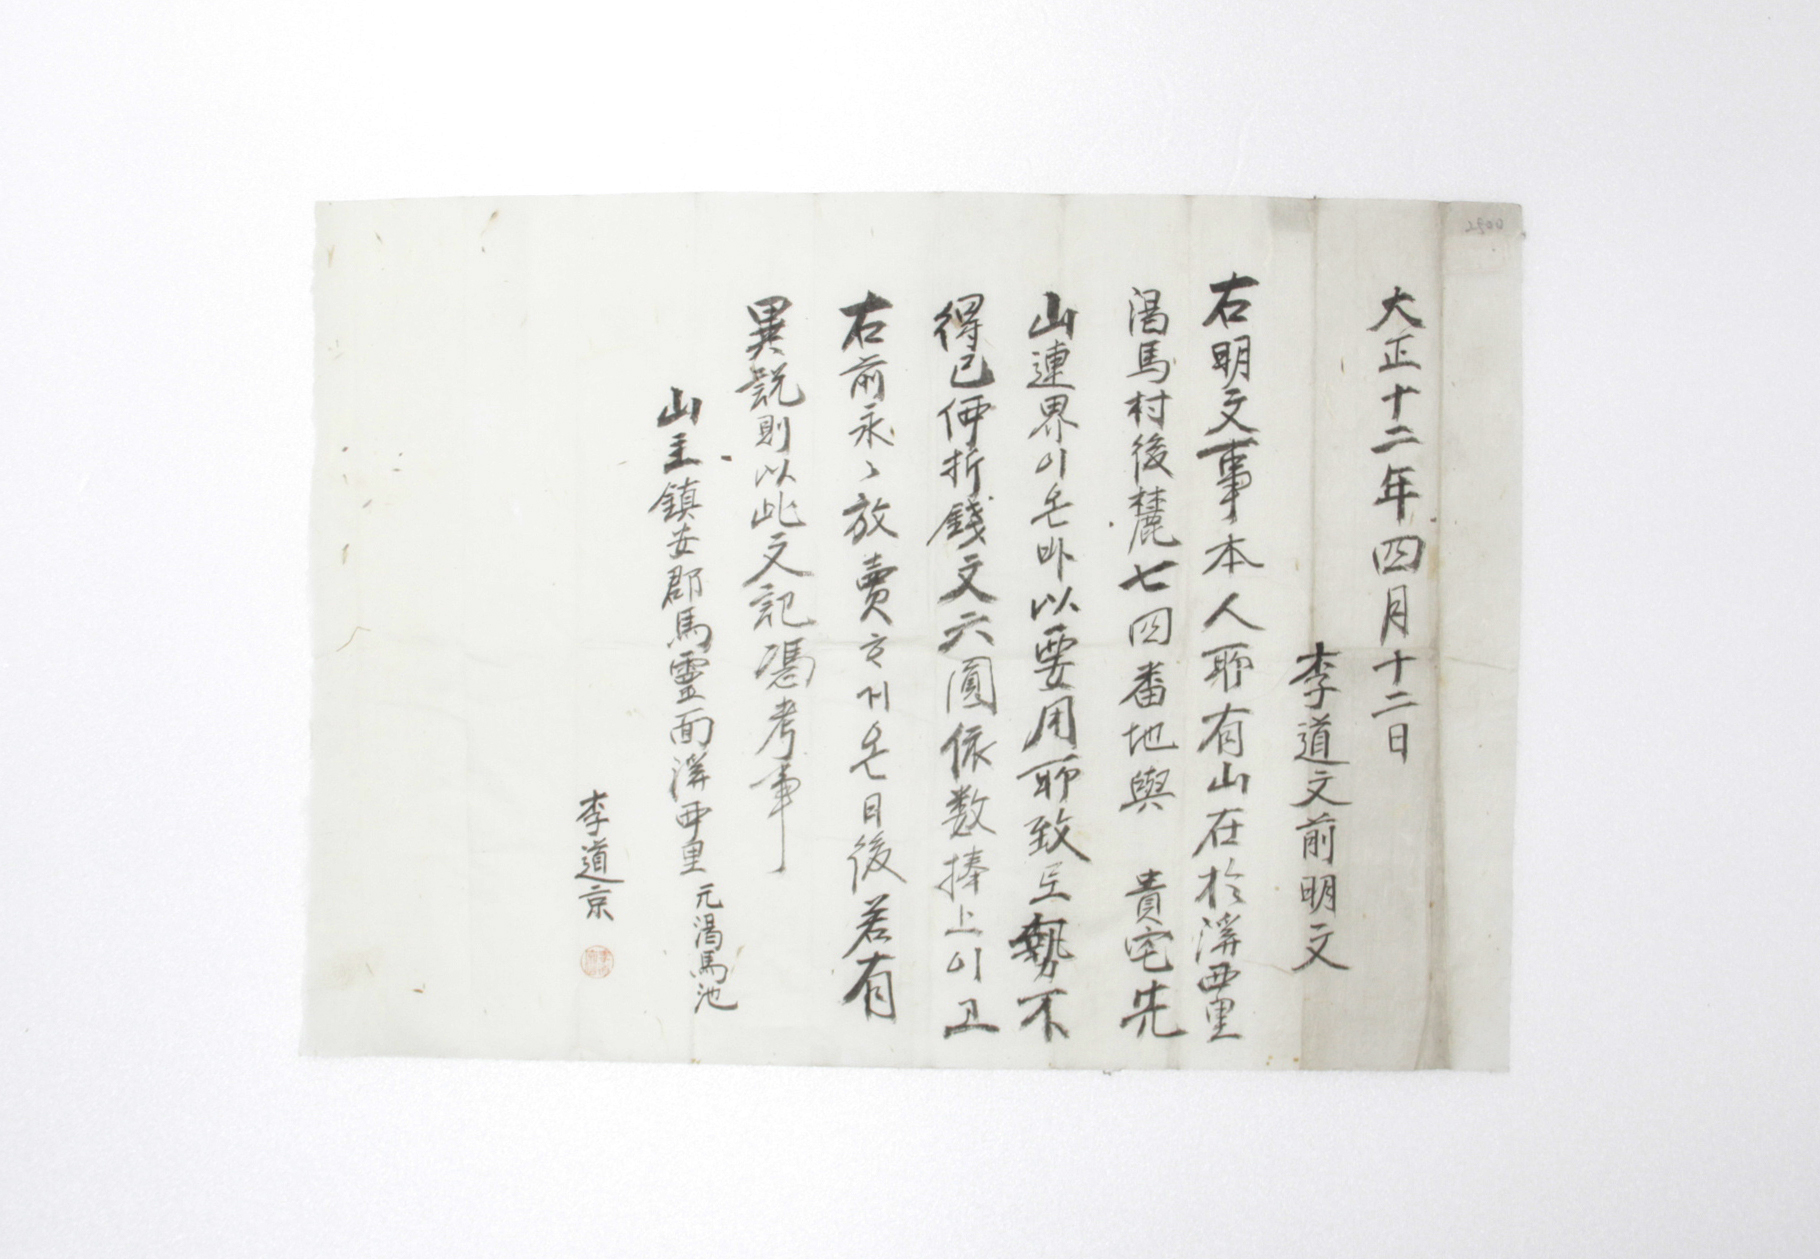 2500
大正十二年四月十二日
李道文前明文
右明文事本人所有山在於溪西里
渴馬村後麓七四番地與 貴宅先
山連界이온바以要用所致로勢不
得已価折錢文六圓依数捧上이고
右前永〻放賣ᄒᆞ거온日後若有
異說則以此文記憑考事
山主鎮安郡馬靈面溪西里 元渴馬池
李道京